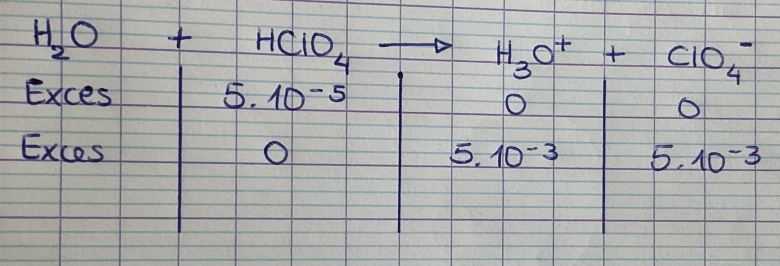 H₂O + HClO₄ → H₃O⁺ + ClO₄⁻
Exces 5.10⁻⁵ 0 0
Exces 0 5.10⁻³ 5.10⁻³